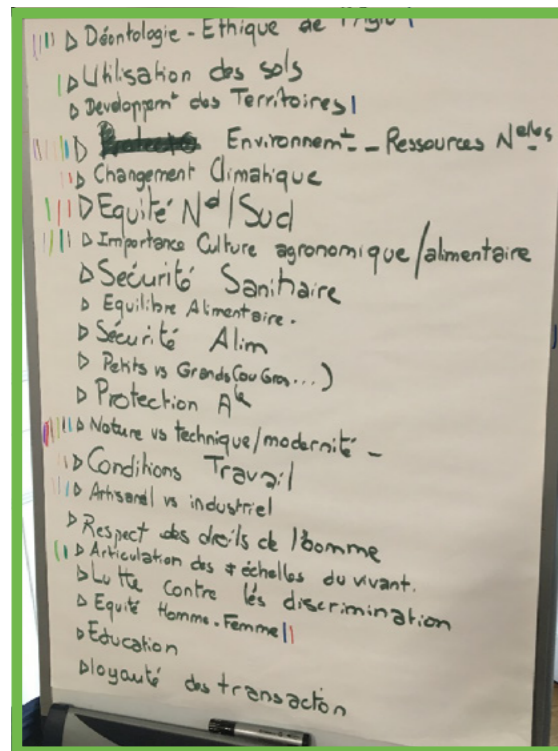 Déontologie - Ethique de l'Agro
Utilisation des sols
Developpemt des Territoires
Environnemt - Ressources Nelles
Changement Climatique
Equité Nd/Sud
Importance Culture agronomique/alimentaire
Sécurité Sanitaire
Equilibre Alimentaire.
Sécurité Alim
Petits vs Grands (ou Gros...)
Protection Ale
Nature vs technique/modernité -
Conditions Travail
Artisanal vs industriel
Respect des droits de l'homme
Articulation des ≠ échelles du vivant.
Lutte contre les discrimination
Equité Homme-Femme
Education
loyauté des transaction